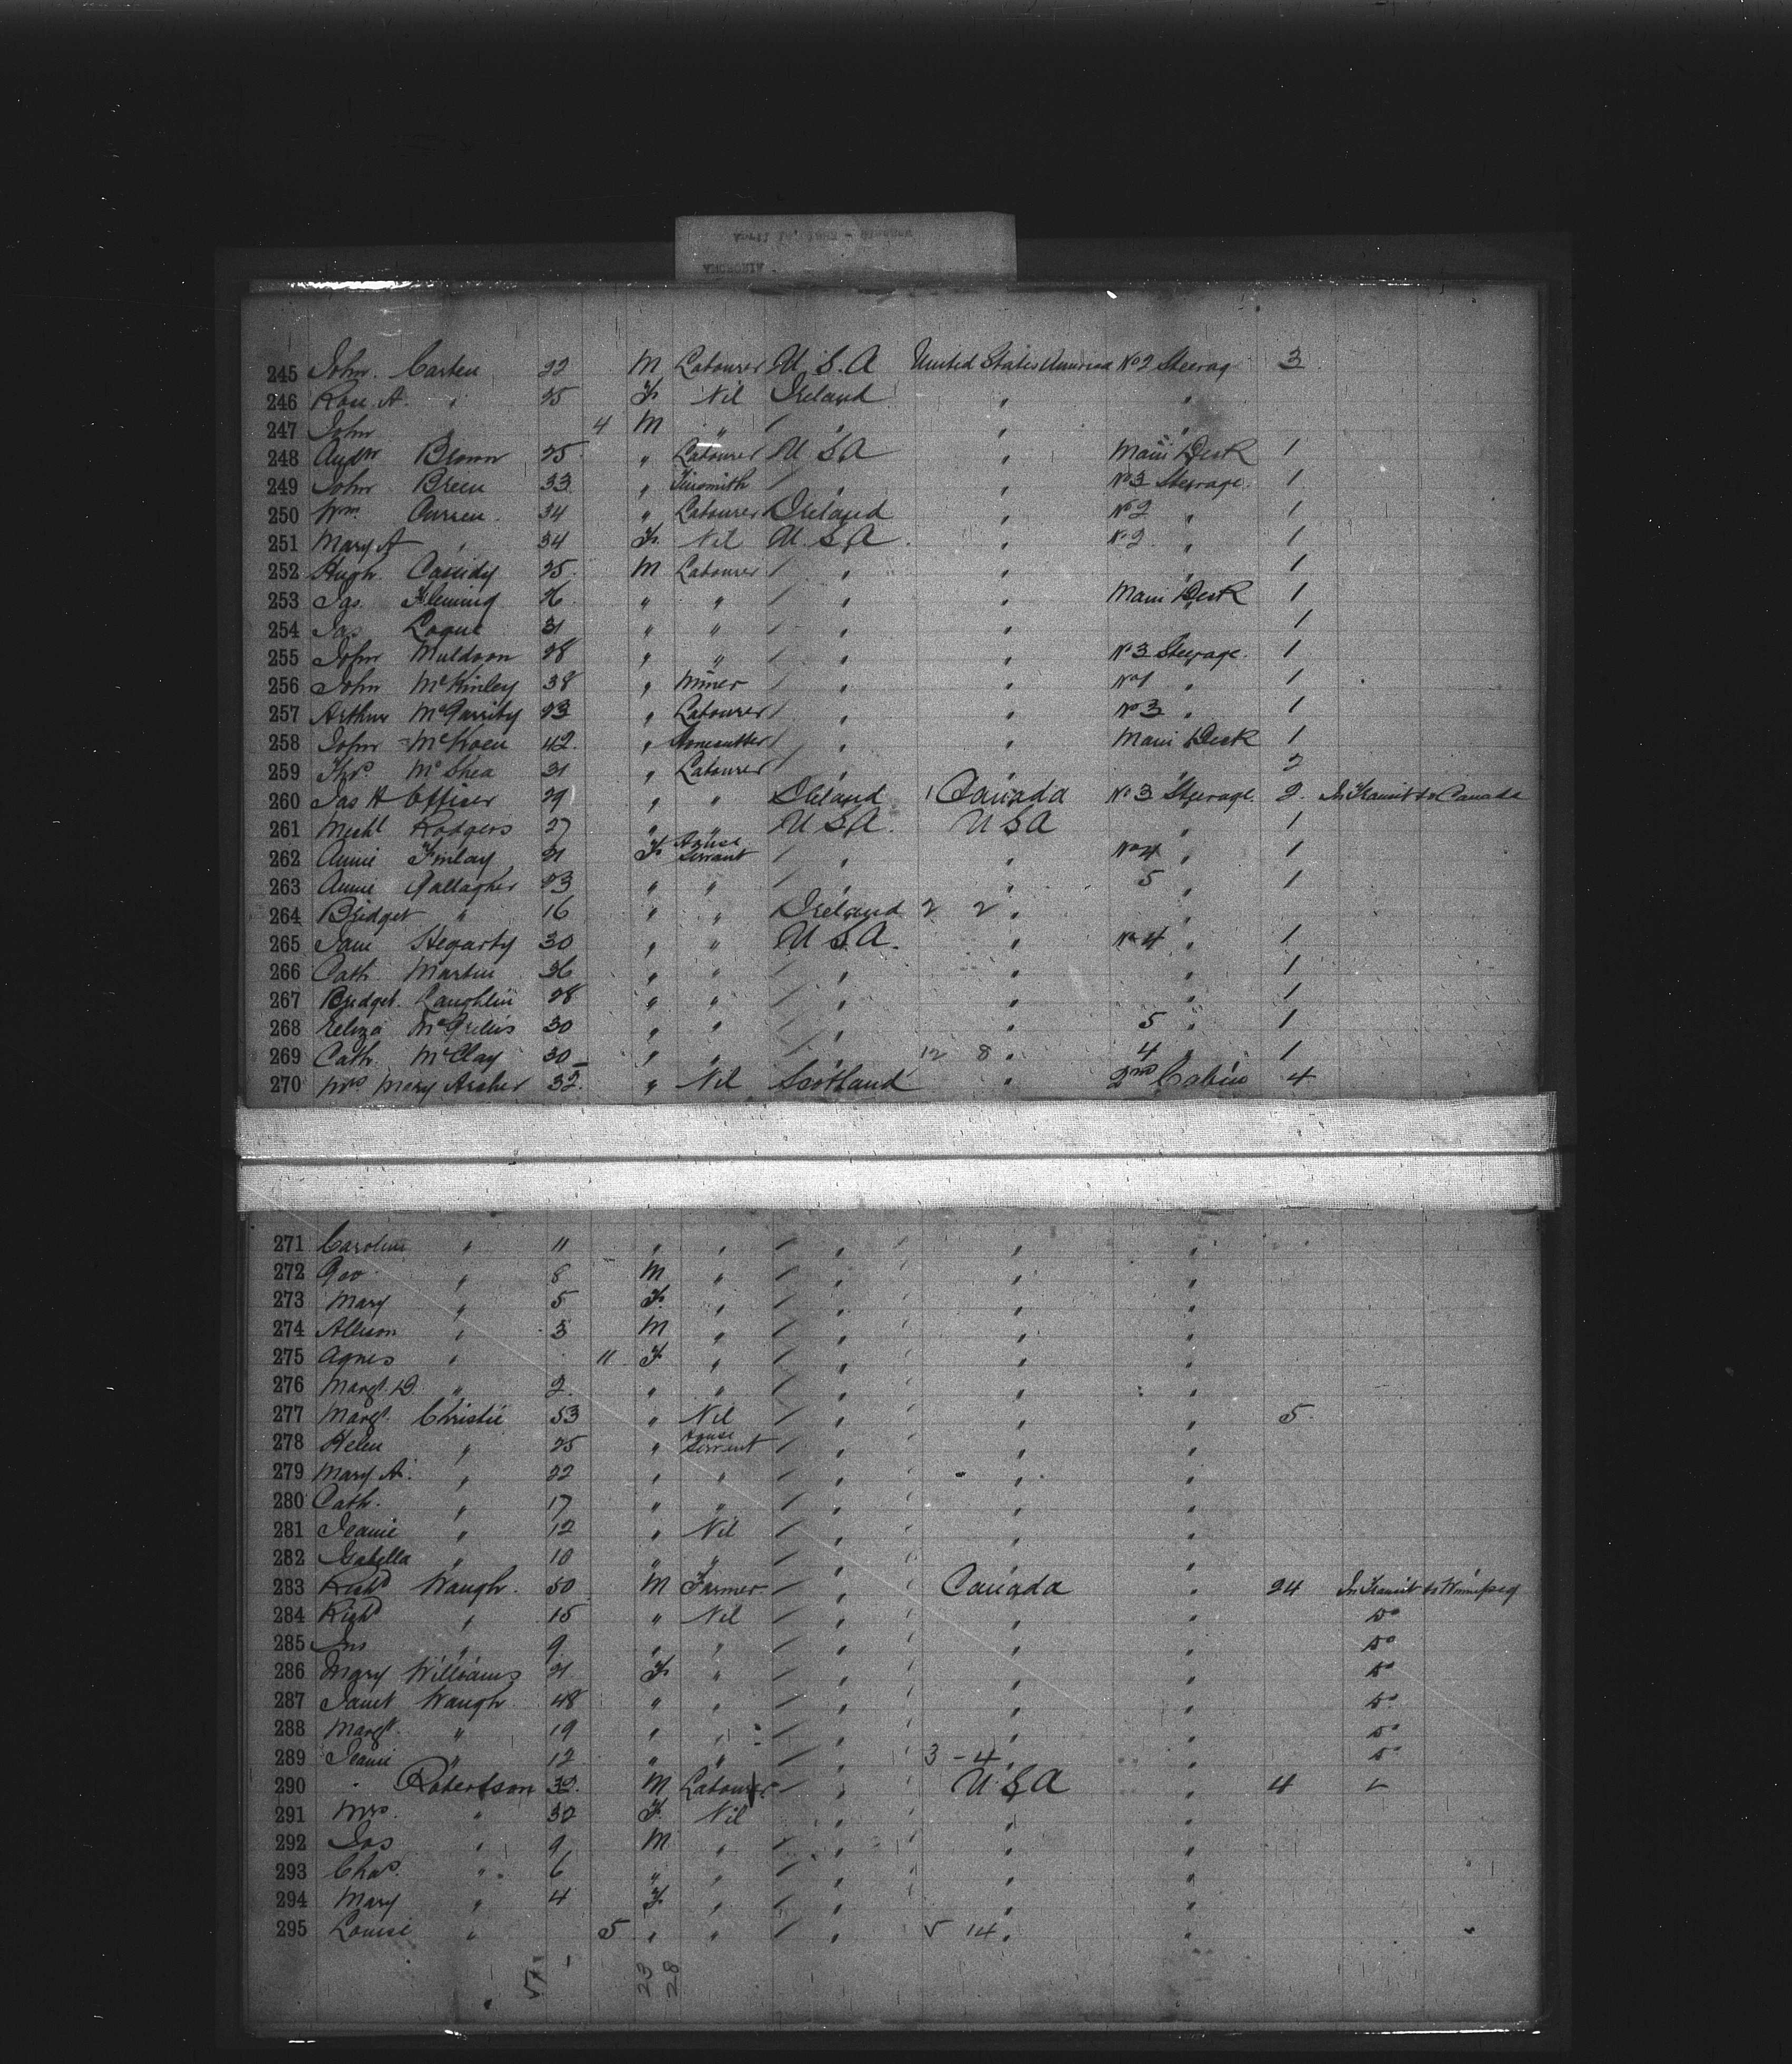 245 John Carten 22 M Labourer U.S.A United States America No 2 Steerag 3
246 Rose A. " 25 F Nil Ireland " "
247 John " 4 M " " " "
248 Andw Brown 25 " Labourer U S A " Main Deck 1
249 John Breen 33 " Tinsmith " " No 3 Steerage 1
250 Wm. Curren 34 " Labourer Ireland " No 2 " 1
251 Mary A " 34 F Nil U.S.A " No 2 " 1
252 Hugh Cassidy 25 M Labourer " " " 1
253 Jas. Fleming 26 " " " " Main Deck 1
254 Jas Logue 31 " " " " 1
255 John Muldoon 28 " " " " No 3 Steerage 1
256 John McKinley 38 " Miner " " No 1 " 1
257 Arthur McGarrity 23 " Labourer " " No 3 " 1
258 John 42 " Stonecutter " " Main Deck 1
259 Thos. McShea 31 " Labourer " " " 2
260 Jas H Officer 29 " " Ireland 1 Canada No 3 Steerage 2 In Transit to Canada
261 Michl Rodgers 27 " " U S A. U S A " 1
262 Annie Finlay 21 F House Servant " " No 4 " 1
263 Annie Gallagher 23 " " " " 5 " 1
264 Bridget " 16 " " Ireland 2 2 " "
265 Jane Hegarty 30 " " U S A. " No 4 " 1
266 Cath Martin 36 " " " " " 1
267 Bridget Laughlin 28 " " " " " 1
268 Eeliza 30 " " " " 5 " 1
269 Cath. McClay 30 " " " 12 8 " 4 " 1
270 Mrs Mary Archer 32 " Nil Scotland " 2nd Cabin 4
271 Caroline " 11 " " " " "
272 Geo " 8 M " " " "
273 Mary " 5 F " " " "
274 Allison " 3 M " " " "
275 Agnes " 11 F " " " "
276 Margt. D. " 2 " " " " "
277 Margt. Christie 53 " Nil " " " 5
278 Helen " 25 " House Servant " " "
279 Mary A. " 22 " " " " "
280 Cath. " 17 " " " " "
281 Jeanie " 12 " Nil " " "
282 Isabella " 10 " " " " "
283 Richd Waugh 50 M Farmer " Canada " 24 In Transit to Winnipeg
284 Richd " 15 " Nil " " " Do
285 Jno " 9 " " " " " Do
286 Mary Williams 21 F " " " " Do
287 Janet Waugh 48 " " " " " Do
288 Margt. " 19 " " " " " Do
289 Jeanie " 12 " " " 3 - 4 " " Do
290 Robertson 32 M Labourer " U S A " 4
291 Mrs. " 32 F Nil " " "
292 Jas " 9 M " " " "
293 Chas. " 6 " " " " "
294 Mary " 4 F " " " "
295 Louise " 5 " " " 5 14 " "
51
23
28